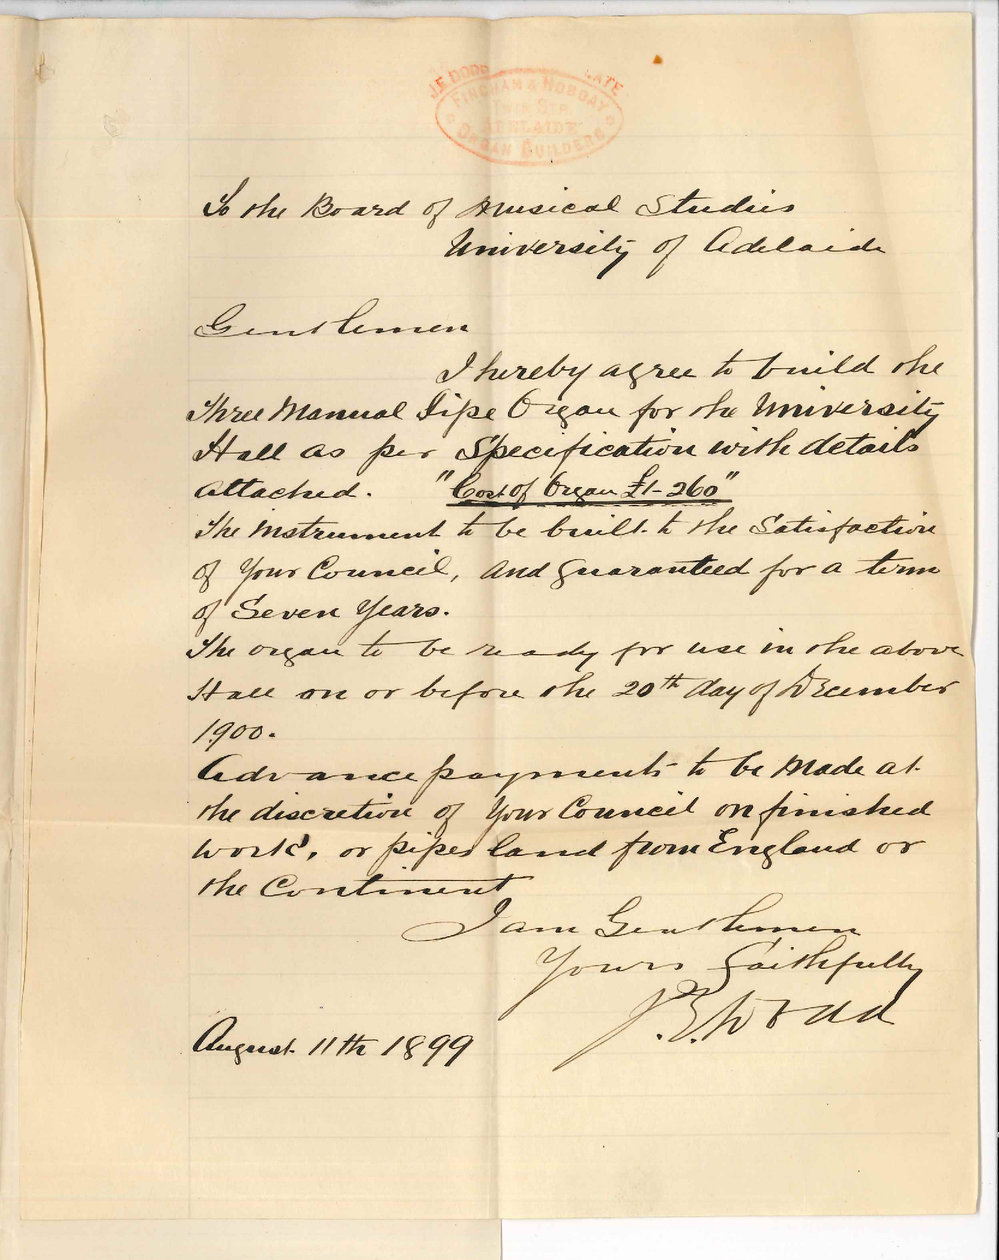 J.E DODD LATE.
FINCHAM & HOBDAY
TWIN STR
ADELAIDE
ORGAN BUILDERS
To the Board of Musical Studies
University of Adelaide
Gentlemen
I hereby agree to build the
Three Manual Pipe Organ for the University
Hall as per Specification with details
attached. "Cost of Organ £1-260"
The instrument to be built to the Satisfaction
of Your Council, and guaranteed for a term
of Seven Years.
The organ to be ready for use in the above
Hall on or before the 20th day of December
1900.
Advance payments to be made at
the discretion of Your Council on finished
work, or pipes land from England or
the Continent
I am Gentlemen
Yours Faithfully
J.E. Dodd
August 11th 1899